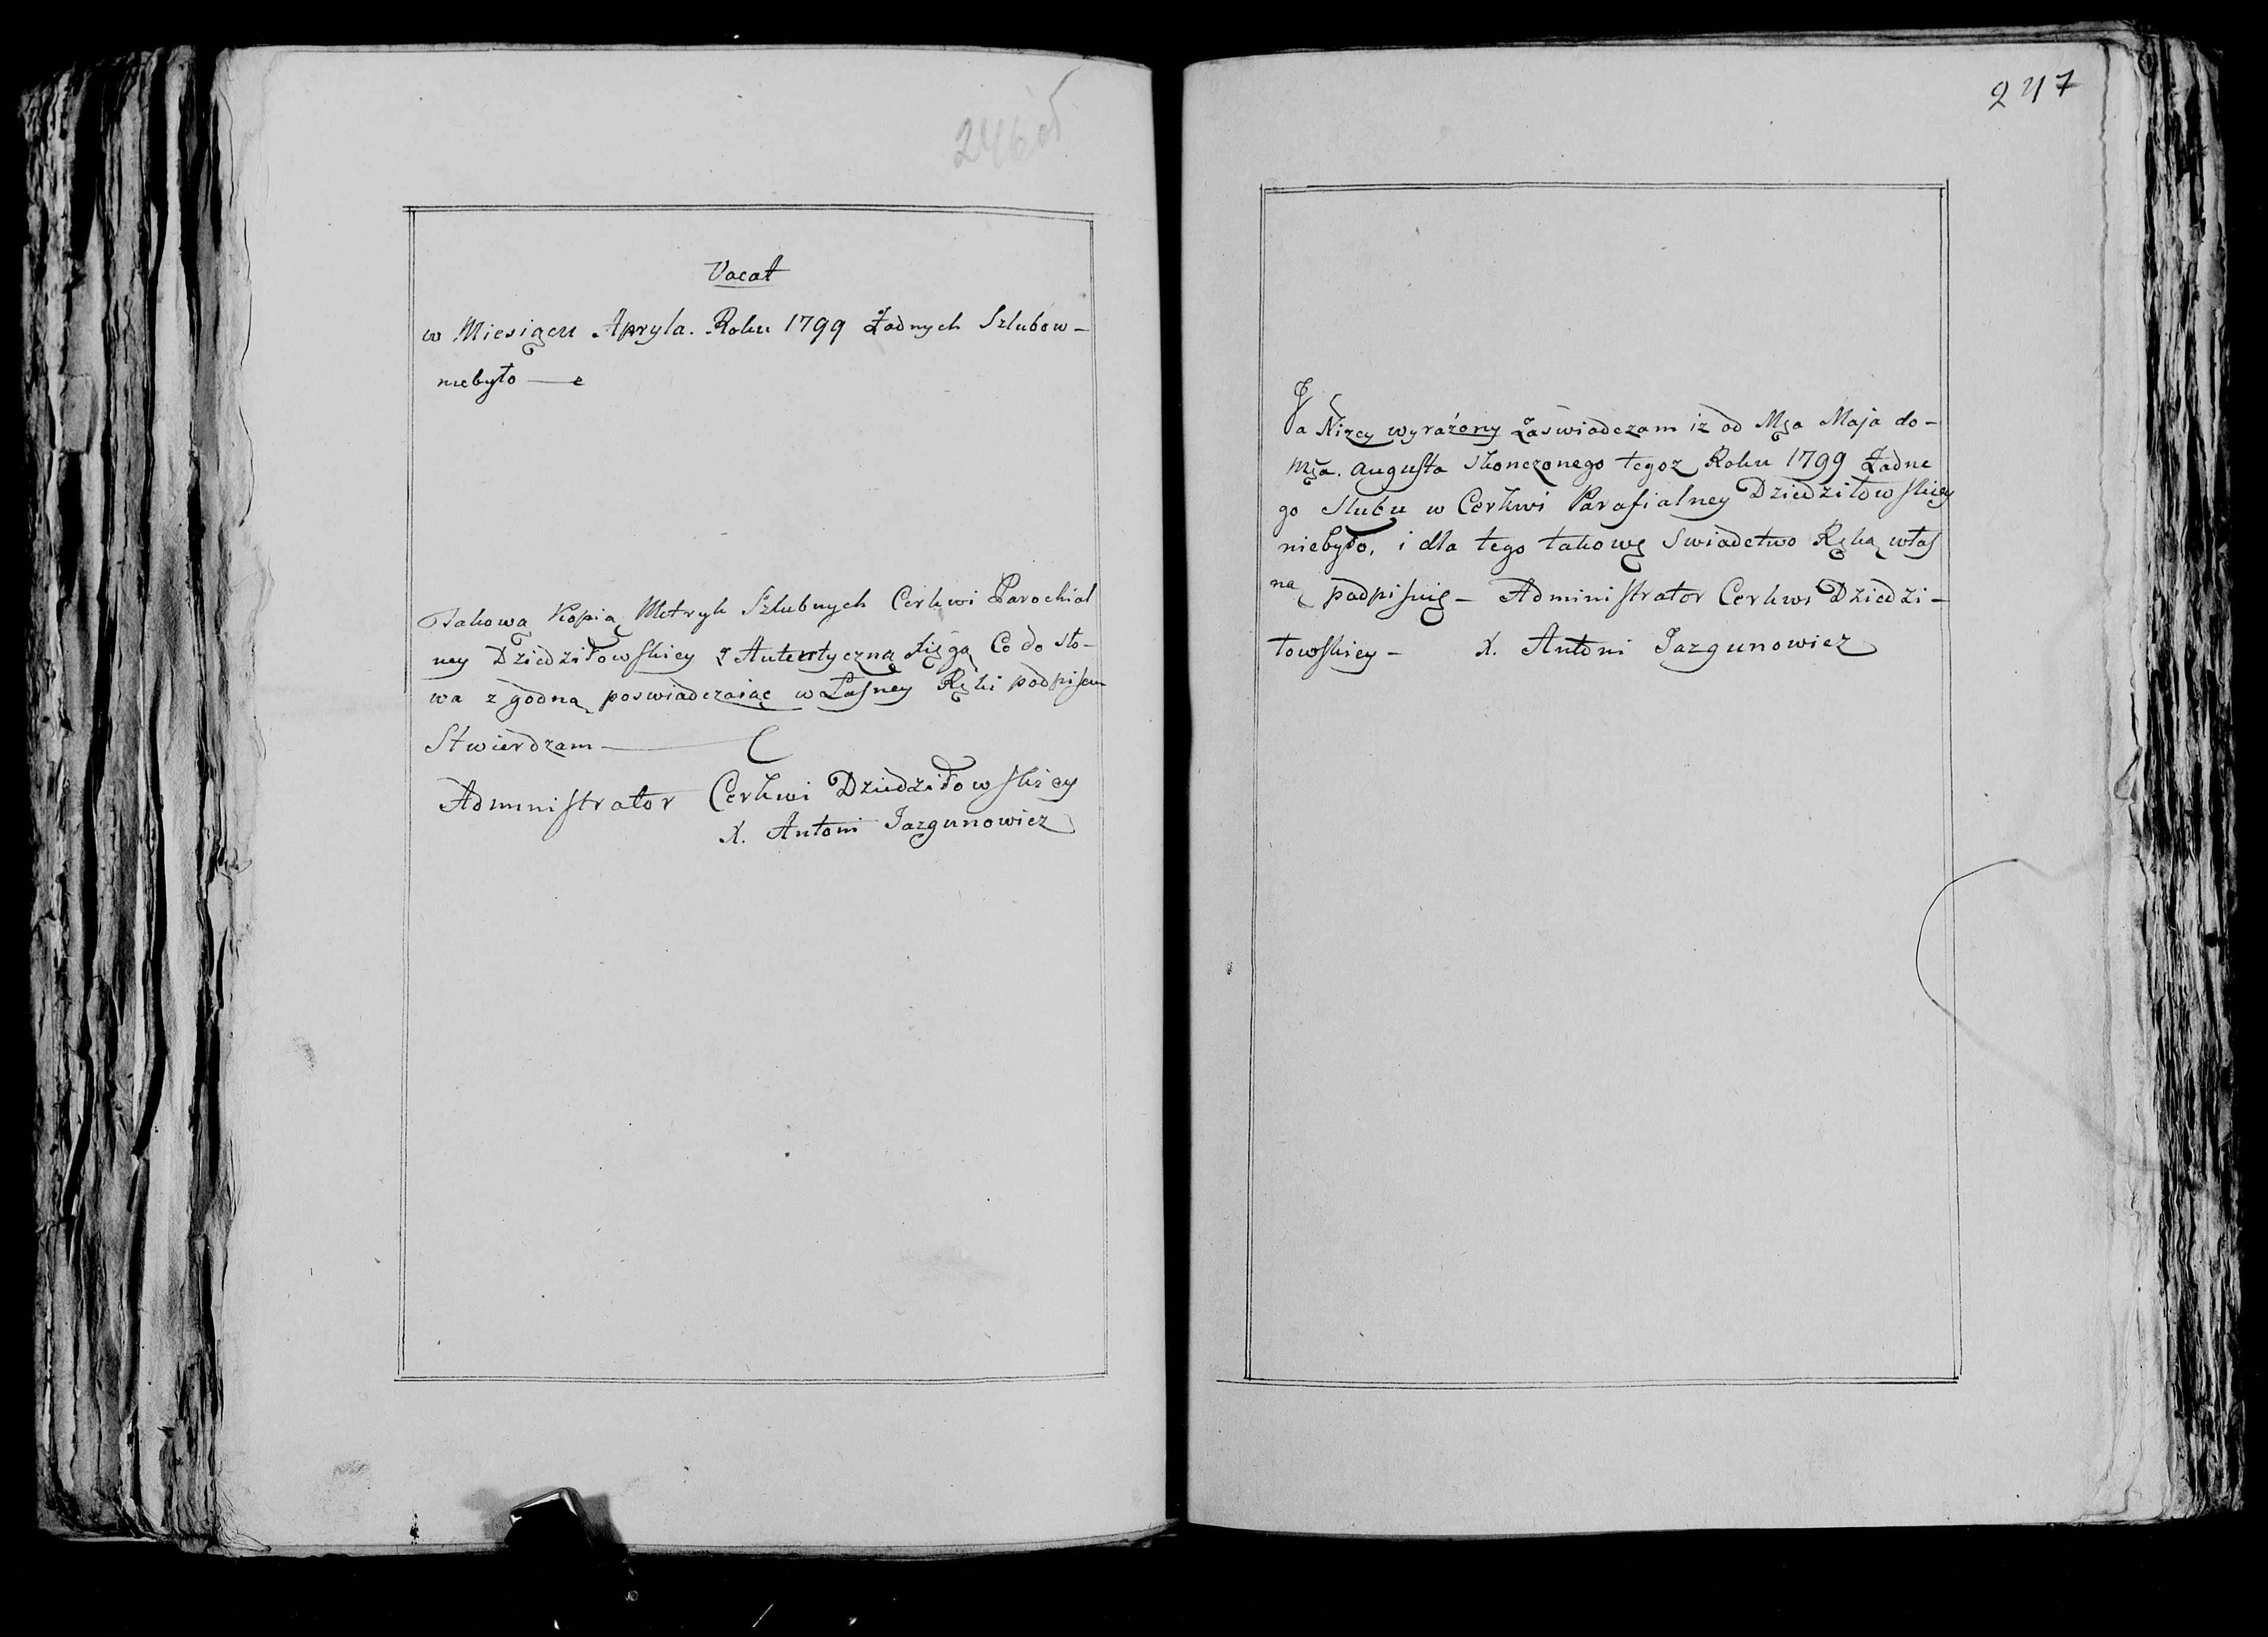 246об
Vacat
w Miesiącu Apryla. Roku 1799 Żadnych Szlubow-
niebyło
Takową Kopią Metryk Szlubnych Cerkwi Parochial
ney Dziedziłowskiey z Autentyczną Xięgą Co do sło-
wa zgodną poswiadczaiąc własney Ręki podpisem
Stwierdzam
Administrator Cerkwi Dziedziłowskiey
X. Antoni Jazgunowicz
247
Ja Niżey wyrażony Zaswiadczam iż od Mca Maja do-
Mca. Augusta skonczonego tegoz Roku 1799 Żadne
go Slubu w Cerkwi Parafialney Dziedziłowskiey
niebyło, i dla tego takowę Swiadctwo Ręką włas
ną podpisuię - Administrator Cerkwi Dziedzi-
łowskiey - X. Antoni Jazgunowicz